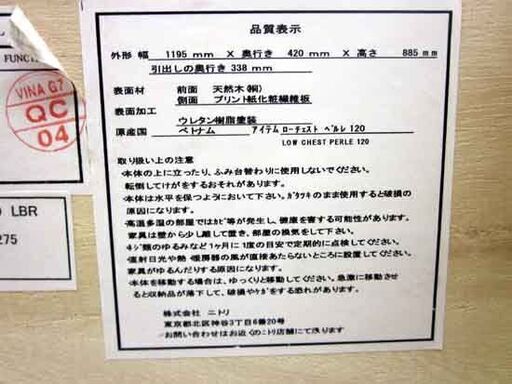 品質表示
外形 幅 1195 mm × 奥行き 420 mm × 高さ 885 mm
引出しの奥行き 338 mm
表面材 前面 天然木(桐)
側面 プリント紙化粧繊維板
表面加工 ウレタン樹脂塗装
原産国 ベトナム アイテム ローチェスト ペルレ 120
LOW CHEST PERLE 120
取り扱い上の注意
・本体の上に立ったり、ふみ台替わりに使用しないでください。
転倒してけがをするおそれがあります。
・本体は水平を保つようにおいて下さい。ガタツキのまま使用すると破損の
原因になります。
・高温多湿の部屋ではカビ等が発生し、健康を害する可能性があります。
家具は壁から少し離して置き、部屋の換気をして下さい。
・ネジ類のゆるみなど1ヶ月に1度の目安で定期的に点検してください。
・直射日光や熱・暖房器の風が直接あたらないところに設置してください。
家具がゆるんだりする原因になります。
・本体を移動する場合は、ゆっくりと移動してください。急激に移動させ
ると収納品が落下して、破損やケガをする恐れがあります。
株式会社 ニトリ
東京都北区神谷3丁目6番20号
お問い合わせはお近くのニトリ店舗にて承ります
L
FUNCTI
VINA G7
QC
04
LBR
275